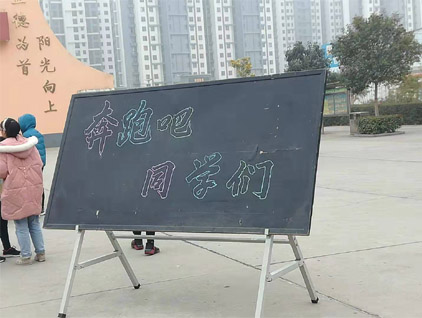 奔跑吧
同学们
德为首
阳光向上